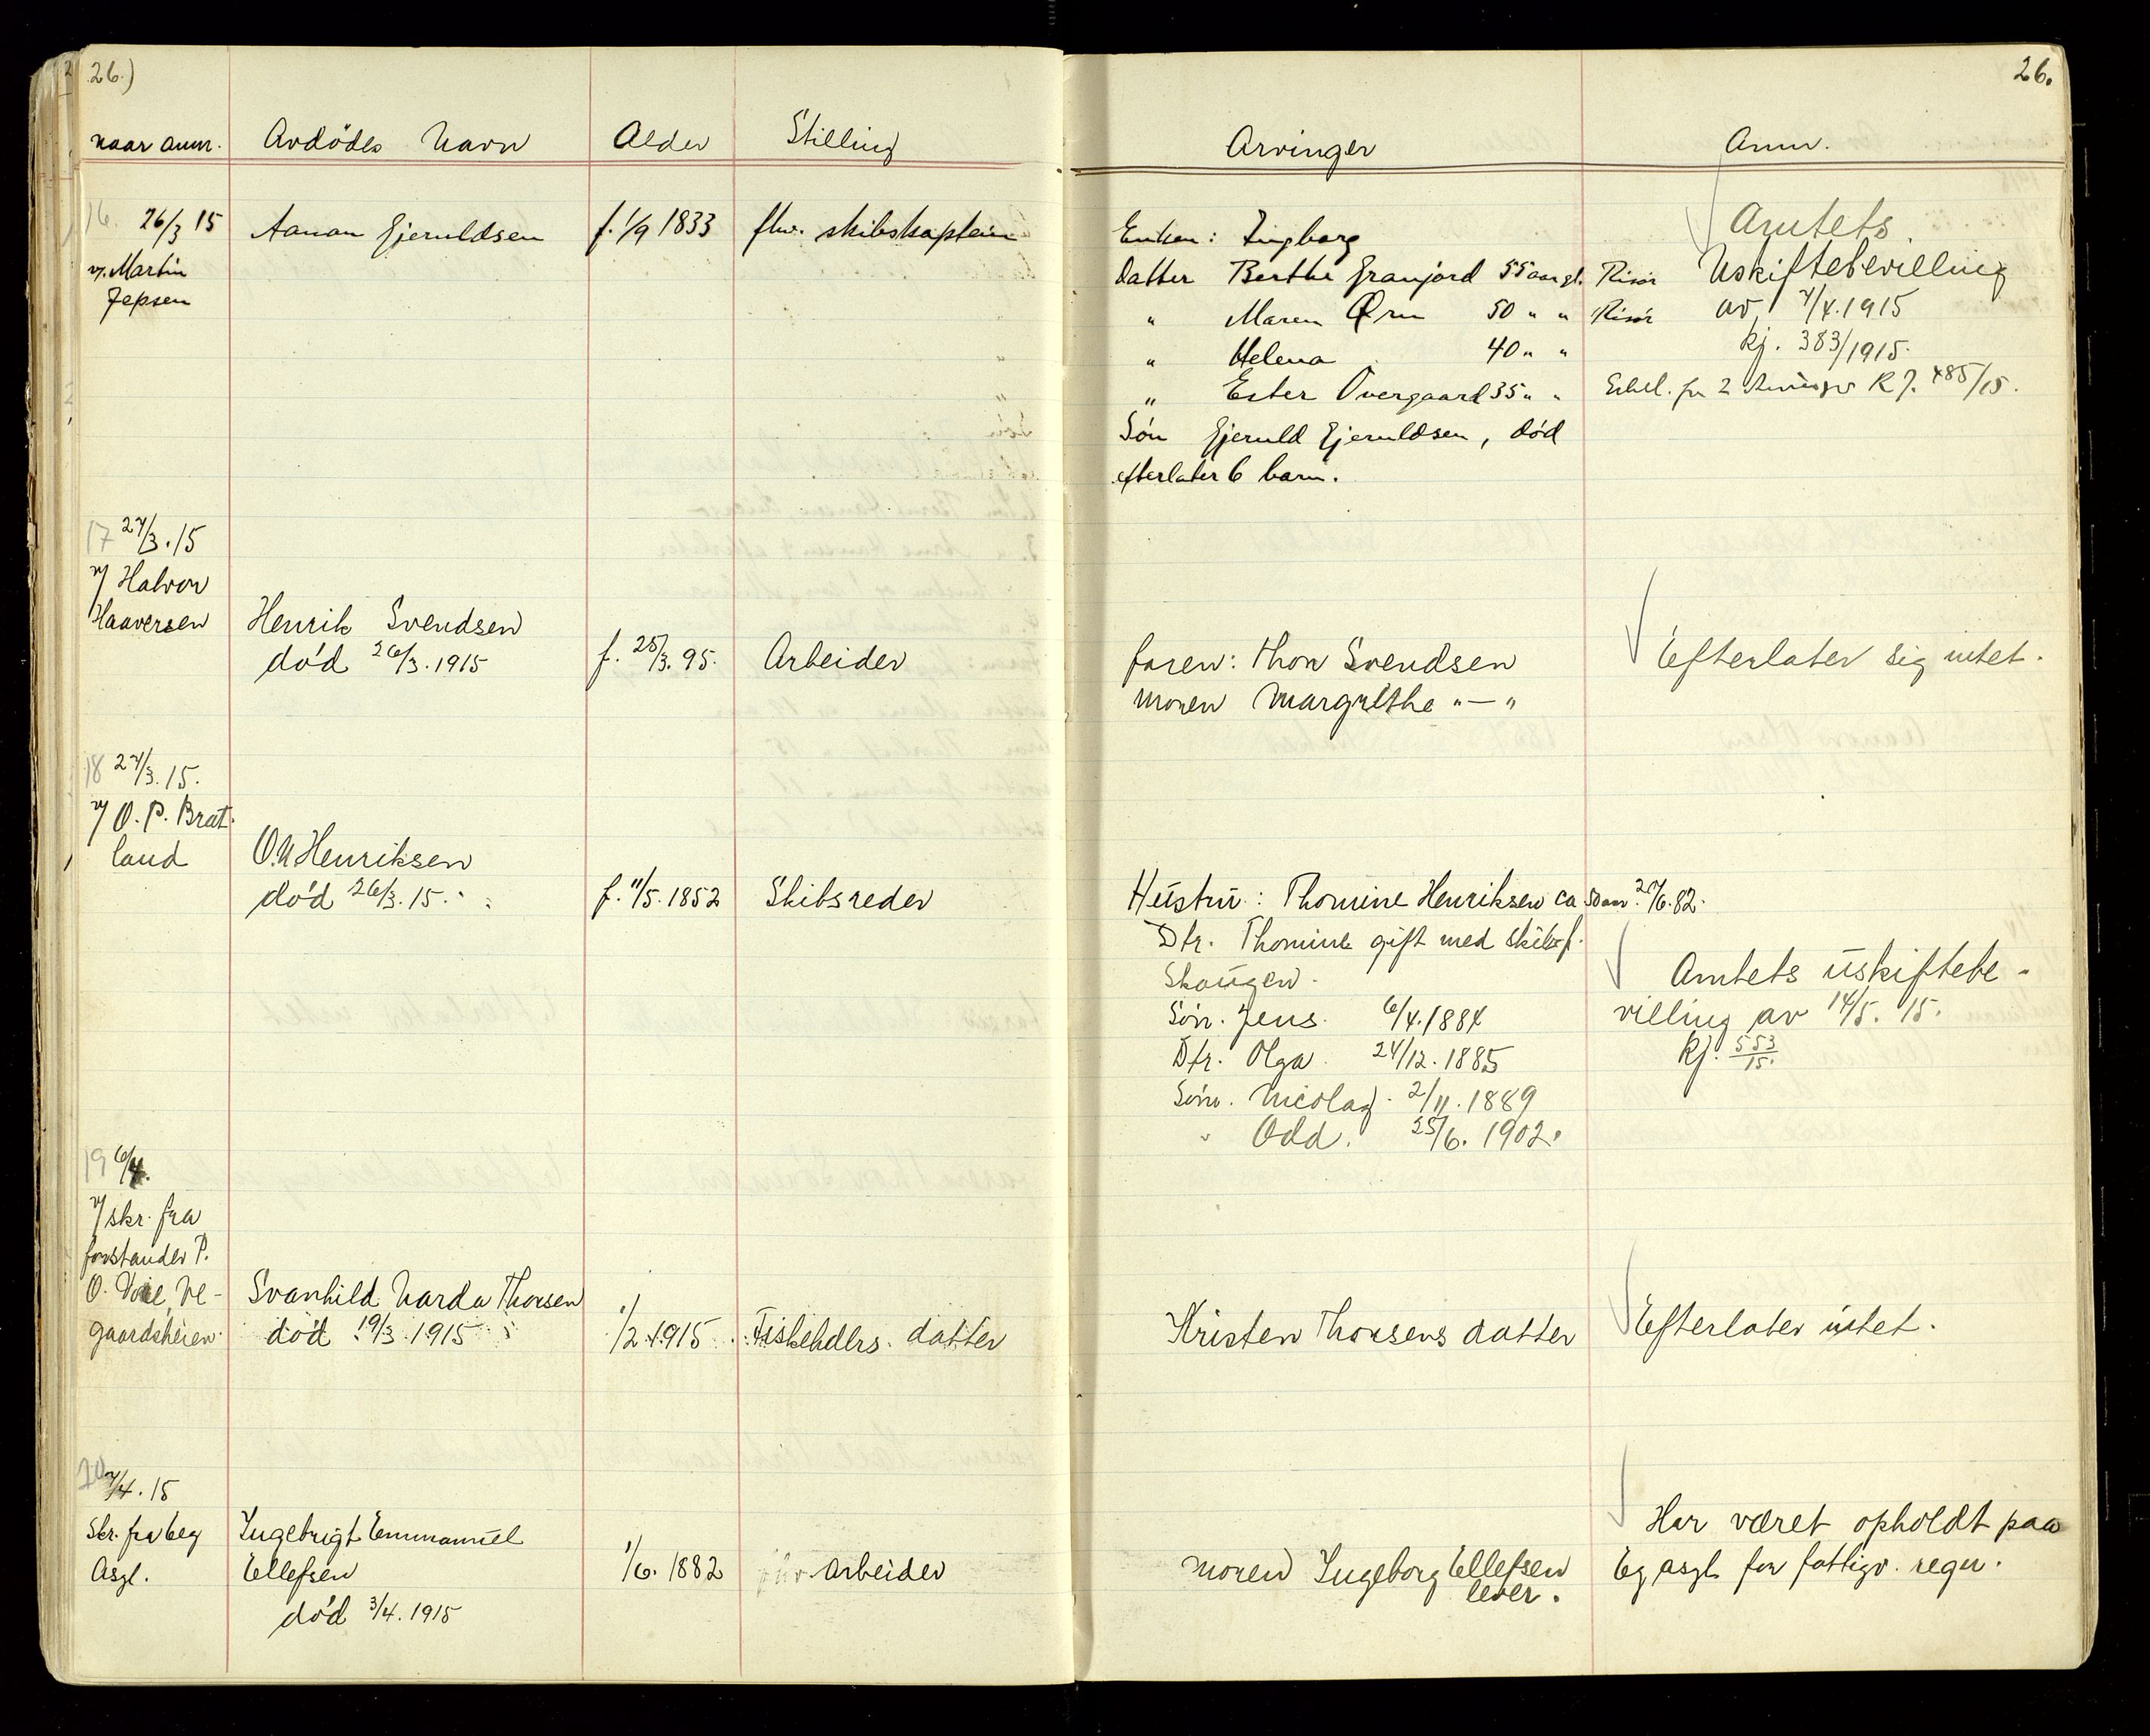 26.)
26.
naar anm. Avdödes Navn Alder Stilling Arvinger Anm.
16. 26/3 15 Aanon Gjeruldsen f. 1/9 1833 fhv. skibskaptein
v. Martin
Jepsen
Enken: Ingborg
Datter Berthe Granfjord 55 aar gl. Risör
" Maren Örn 50 " " Risör
" Helena 40 " "
" Ester Overgaard 35 " "
Sön Gjeruld Gjeruldsen, död
efterlater 6 barn.
Amtets
Uskiftebevilling
av 7/4.1915
kj. 383/1915.
2 RJ. 485/15.
17 27/3.15
v/ Halvor
Haaversen Henrik Svendsen
död 26/3.1915 f. 25/3.95. Arbeider
faren: Thor Svendsen
moren Margrethe "—"
Efterlater sig intet.
18 27/3.15.
v/ O. P. Brat-
land O.N Henriksen
död 26/3.15. f. 11/5.1852 Skibsreder
Hustru: Thomine Henriksen ca 50 aar 27/6.82.
Dtr. Thomine gift med skibsf.
Skougen.
Sön. Jens. 6/4.1884
Dtr. Olga. 24/12.1885
Sön. Nicolay. 2/11.1889
" Odd. 25/6.1902.
Amtets uskiftebe-
villing av 14/5.15.
Kj. 553/15.
19 6/4.
v/ skr. fra
forstander P.
O. Ve-
gaardsheien. Svanhild Narda Thorsen
död 19/3.1915 1/2.1915 Fiskehdlrs. datter
Kristen Thorsens datter
Efterlater intet.
20 7/4.15
Skr. fra Eeg
Asyl. Ingebrigt Emmanuel
Ellefsen
död 3/4.1915 1/6.1882 arbeider
moren Ingeborg Ellefsen
lever.
Har været opholdt paa
Eg asyl for fattigv. regn.